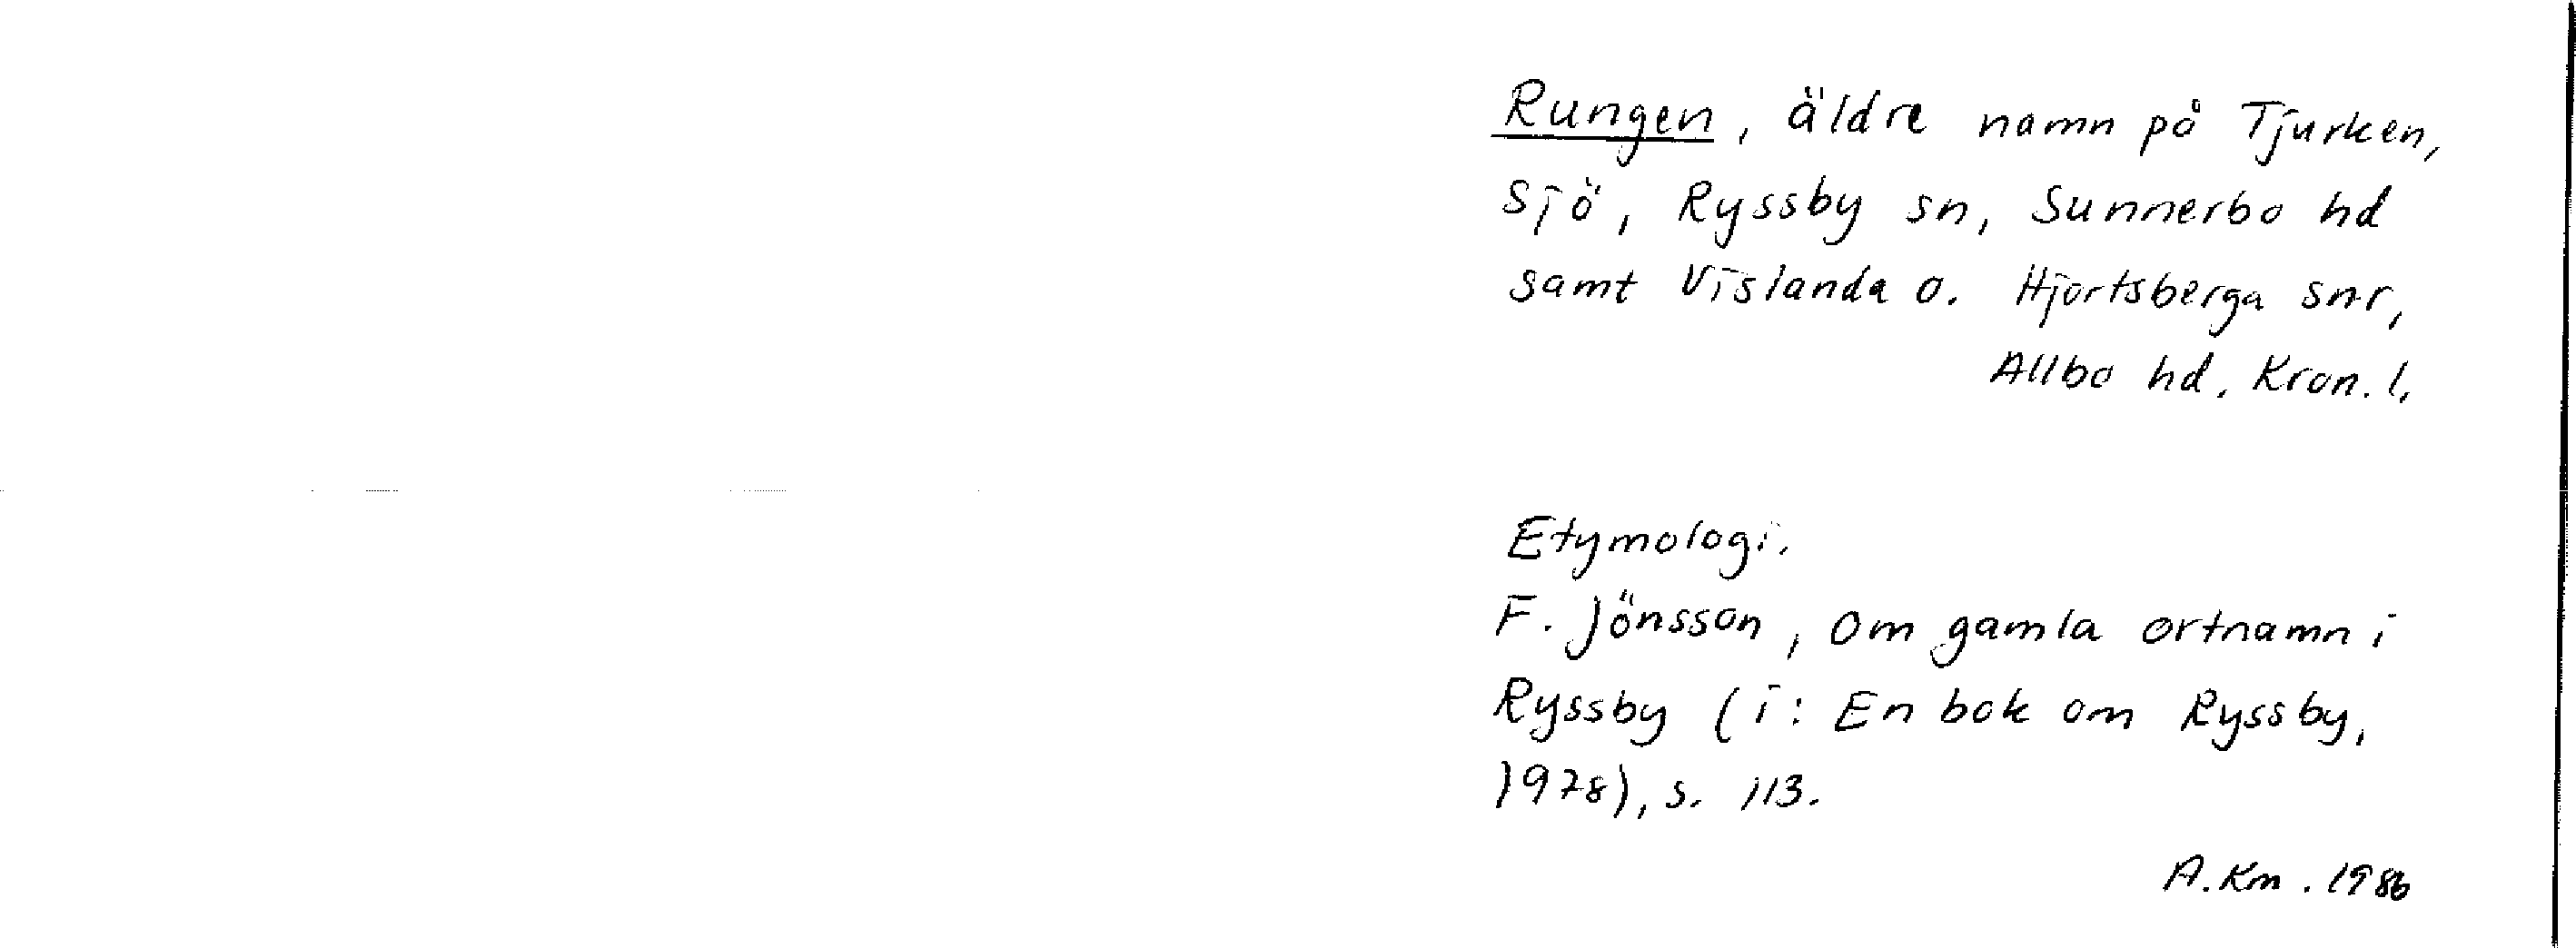 Rungen, äldre namn på Tjurken,
sjö, Ryssby sn, Sunnerbo hd
samt Vislanda o. Hjortsberga snr,
Allbo hd. Kron. l.
Etymologi.
F. Jönsson, Om gamla ortnamn i
Ryssby (i: En bok om Ryssby,
1978), s. 113.
A. Km. 1986